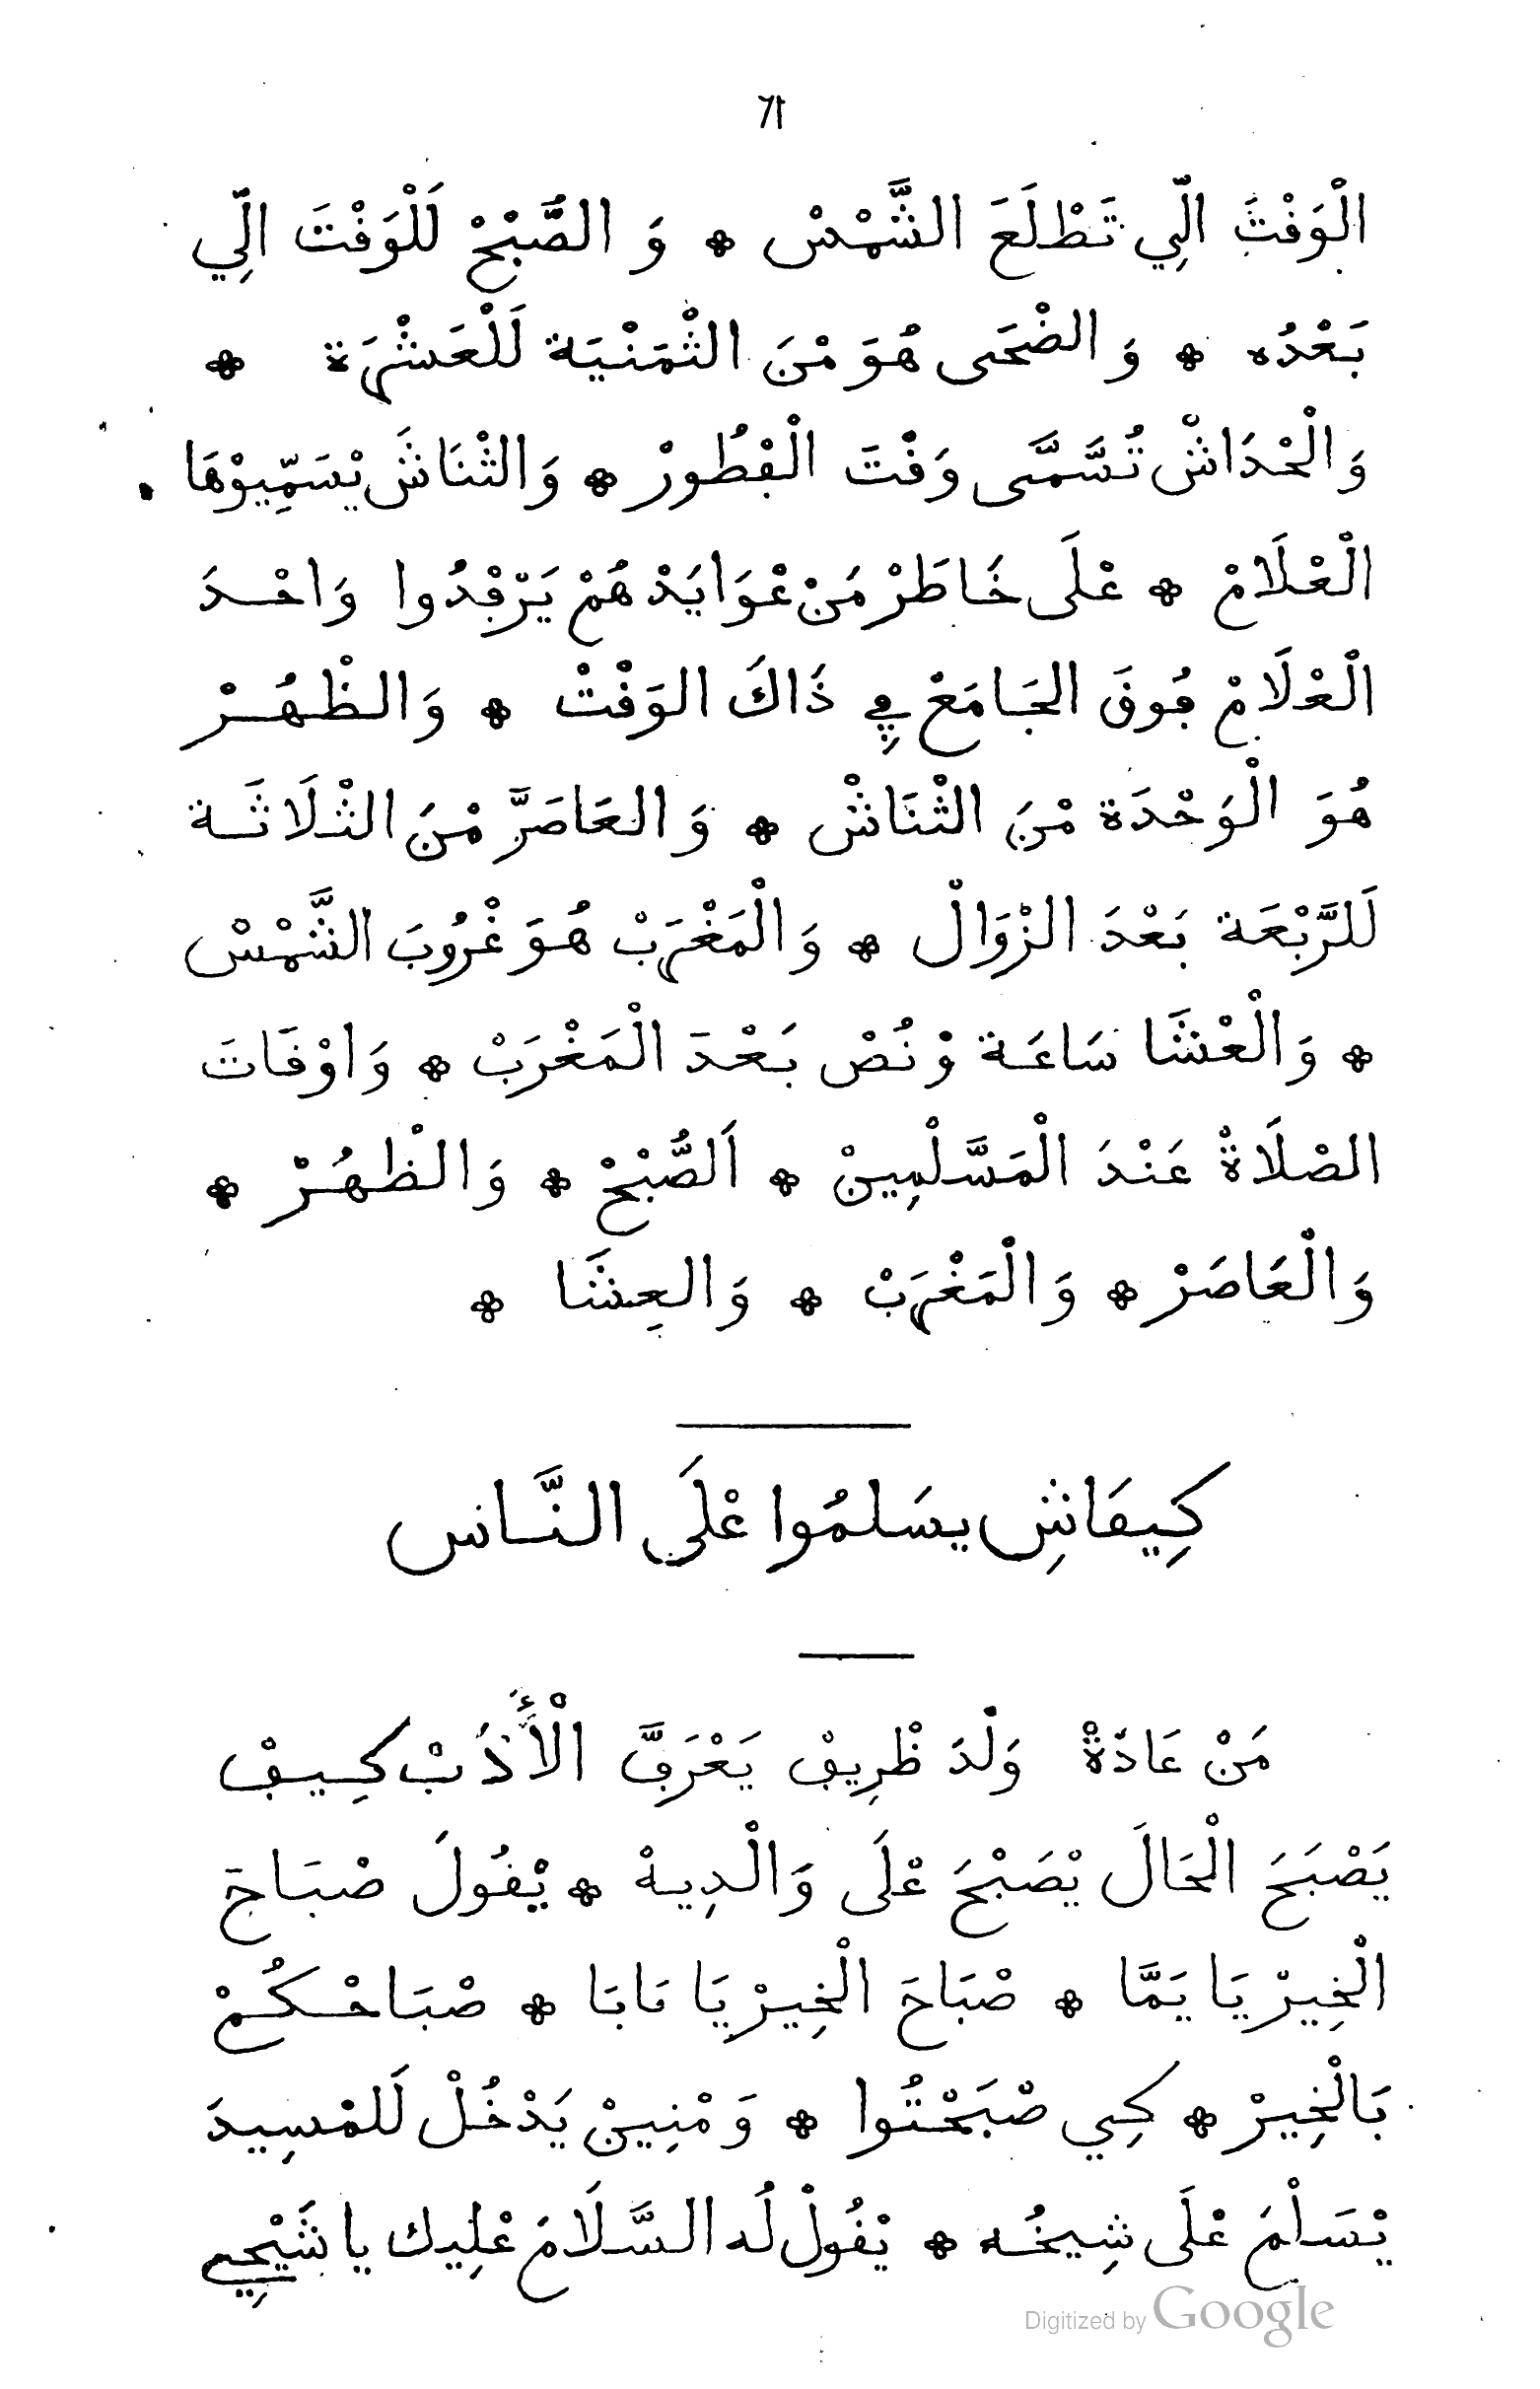 ٦١
الْوَقْتَ الِّي تَطْلَعَ الشَّمْسْ * وَ الصُّبْحْ لَلْوَقْتَ الِّي
بَعْدُه * وَالضْحَى هُوَ مْنَ الثْمَنْيَة لَلْعَشْرَة *
وَالْحْدَاشْ تُسَّمَّى وَقْتَ الْفْطُورْ * وَالثْنَاشَ يْسَمِّيوْهَا
الْعْلَامْ * عْلَى خَاطَرْ مَنْ عْوَايَدْهُمْ يَرْفْدُوا وَاحْدَ
الْعْلَامْ فُوقَ الجَامَعْ فِي ذَاكَ الوَقْتْ * وَالظْهُرْ
هُوَ الْوَحْدَة مْنَ الثْنَاشْ * وَالعَاصَرَّ مْنَ الثْلَاثَة
لَلرَّبْعَة بَعْدَ الزْوَالْ * وَالْمَغْرَبْ هُوَ غْرُوبَ الشَّمْسْ
* وَالْعْشَا سَاعَة وْنُصْ بَعْدَ الْمَغْرَبْ * وَاوْقَاتَ
الصْلَاةْ عَنْدَ الْمَسَّلْمِينْ * اَلصُّبْحْ * وَالظْهُرْ *
وَالْعَاصَرْ * وَالْمَغْرَبْ * وَالعِشَا *
كِيفَاشِ يسَلمُوا عْلَى النَّاس
مَنْ عَادَةْ وَلْدَ ظْرِيفْ يَعْرَفَّ الْأَدَبْ كِيفْ
يَصْبَحَ الْحَالَ يْصَبْحَ عْلَى وَالْدِيهْ * يْقُولَ صْبَاحَ
الْخِيرْ يَا يَمَّا * صْبَاحَ الْخِيرْ يَا بَابَا * صْبَاحْكُمْ
بَالْخِيرْ * كِي صْبَحْتُوا * وَمْنِينْ يَدْخُلْ لَلمْسِيدَ
يْسَلْمَ عْلَى شِيخُه * يْقُولْ لُه السَّلَامَ عْلِيك يا شَيْخِي
Digitized by Google